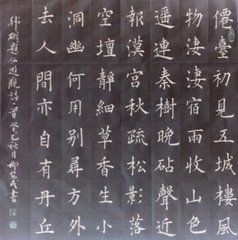 僊臺初見五城樓風
物淒淒宿雨收山色
遥連秦樹晚砧聲近
報漢宮秋疏松影落
空壇靜細草香生小
洞幽何用別尋方外
去人間亦自有丹丘
韓翃題仙遊觀詩 秋月 書